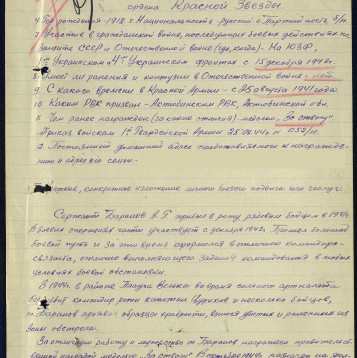 ордена Красной Звезды.
4. Год рождения - 1912 5. Национальность - русский 6. Партийность б/п
7. Участие в гражданской войне, последующих боевых действиях по
защите СССР и Отечественной войне (где, когда) - На ЮЗФ,
1м Украинском и 4м Украинском фронтах с 15 декабря 1942г.
8. Имеет ли ранения и контузии в Отечественной войне - нет.
9. С какого времени в Красной Армии - с 25 августа 1941 года.
10. Каким РВК призван - Актюбинским РВК, Актюбинской обл.
11. Чем ранее награжден (за какие отличия) - медалью "За отвагу"
Приказ войскам 1й Гвардейской Армии № 052/н.
12. Постоянный домашний адрес представляемого к награждению
и адрес его семьи -
Краткое, конкретное изложение личного боевого подвига или заслуг.
Сержант Баранов прибыл в роту рядовым бойцом в
В боевых операциях части участвует с декабря 1942г. Прошел большой
боевой путь и за это время оформился в отличного командира-
связиста, отлично выполняющего задания командования в любых
условиях боевой обстановки.
В 1944г. в районе во время сильного артналета
командир роты капитан и несколько бойцов,
т. Баранов проявил образцы храбрости, вынеся двоих и раненых из
зоны обстрела.
За отличную работу и мужество т. Баранов награжден правительст-
венной наградой медалью "За отвагу". В октябре 1944г. назначен на